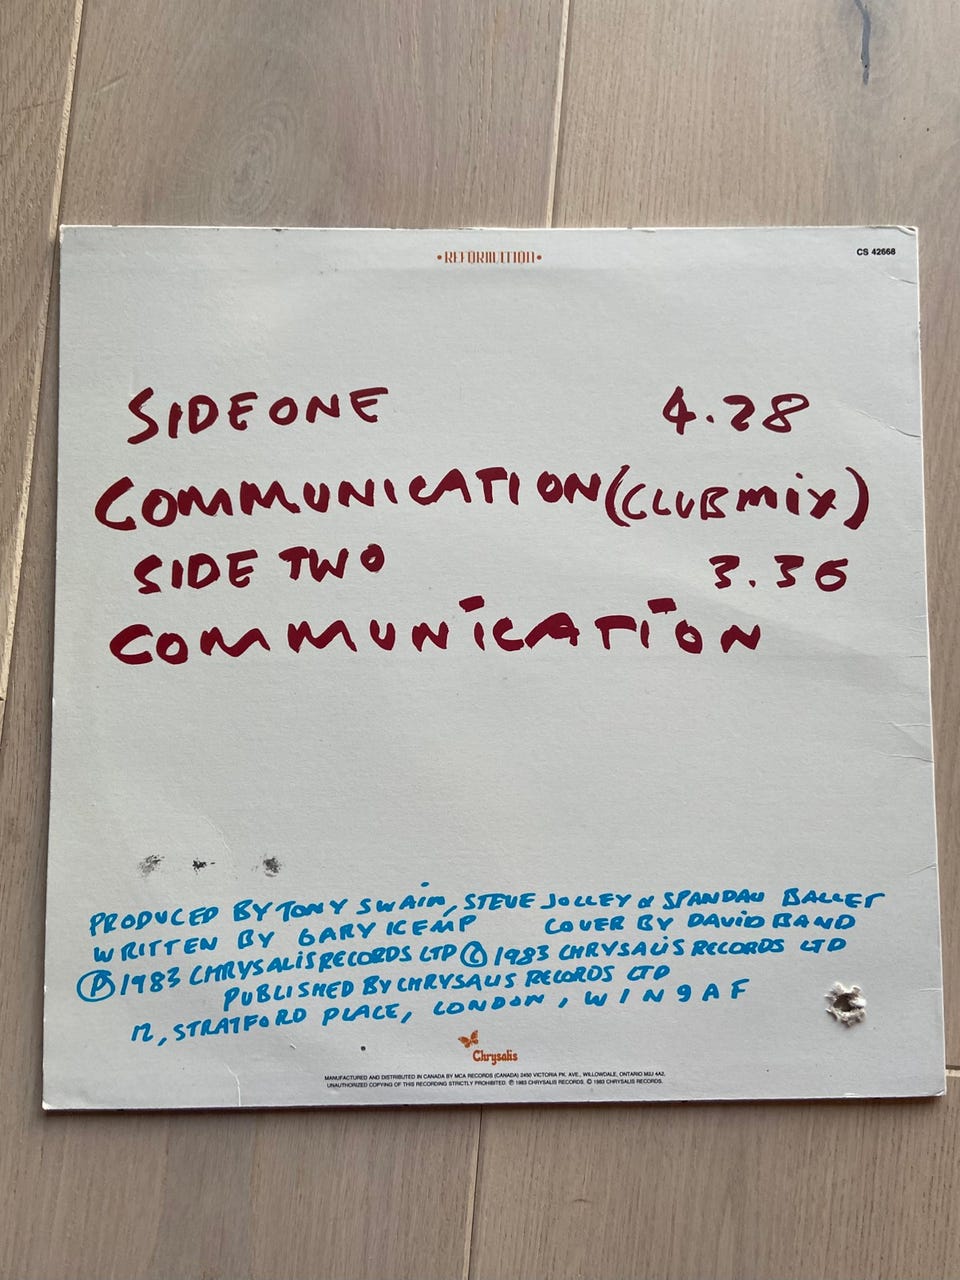 •REFORMATION•
CS 42668
SIDE ONE 4.28
COMMUNICATION (CLUB MIX)
SIDE TWO 3.36
COMMUNICATION
PRODUCED BY TONY SWAIN, STEVE JOLLEY & SPANDAU BALLET
WRITTEN BY GARY KEMP COVER BY DAVID BAND
Ⓟ 1983 CHRYSALIS RECORDS LTD © 1983 CHRYSALIS RECORDS LTD
PUBLISHED BY CHRYSALIS RECORDS LTD
12, STRATFORD PLACE, LONDON, W1N 9AF
Chrysalis
MANUFACTURED AND DISTRIBUTED IN CANADA BY MCA RECORDS (CANADA) 2450 VICTORIA PK. AVE., WILLOWDALE, ONTARIO M2J 4A2.
UNAUTHORIZED COPYING OF THIS RECORDING STRICTLY PROHIBITED. Ⓟ 1983 CHRYSALIS RECORDS. © 1983 CHRYSALIS RECORDS.